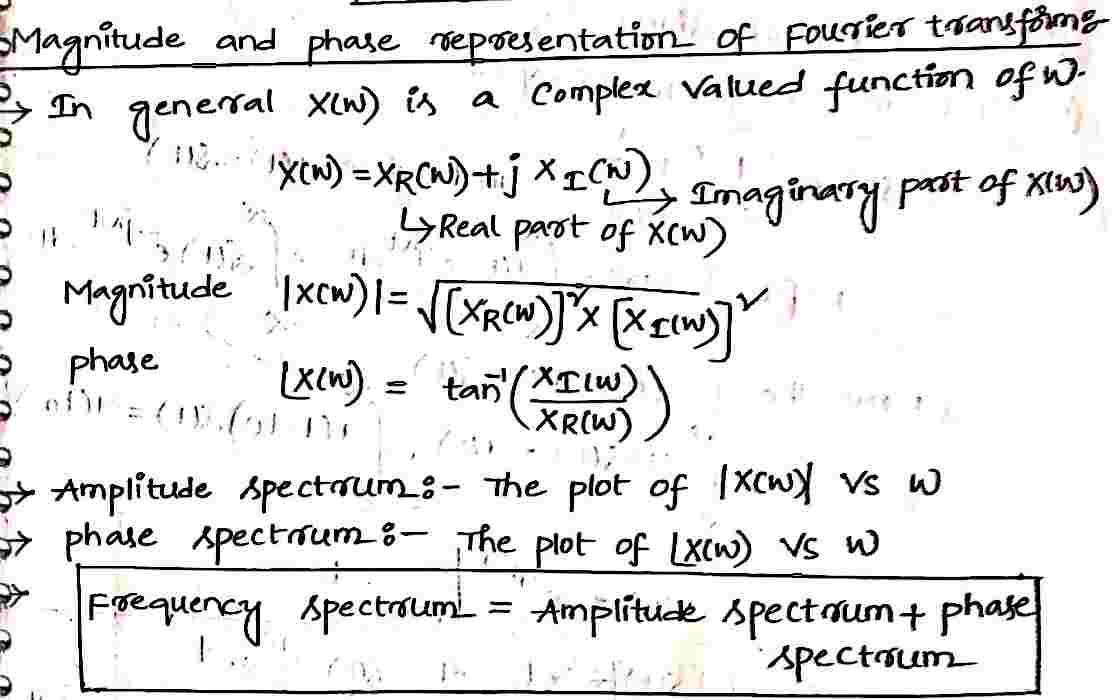 Magnitude and phase representation of Fourier transforms
→ In general X(W) is a Complex Valued function of W.
X(W) = XR(W) + j XI(W) → Imaginary part of X(W)
↳ Real part of X(W)
Magnitude |X(W)| = √[XR(W)]² X [XI(W)]²
phase ⌊X(W) = tan⁻¹(XI(W)/XR(W))
→ Amplitude spectrum:- The plot of |X(W)| VS W
→ phase spectrum:- The plot of ⌊X(W) VS W
→ Frequency spectrum = Amplitude spectrum + phase
spectrum